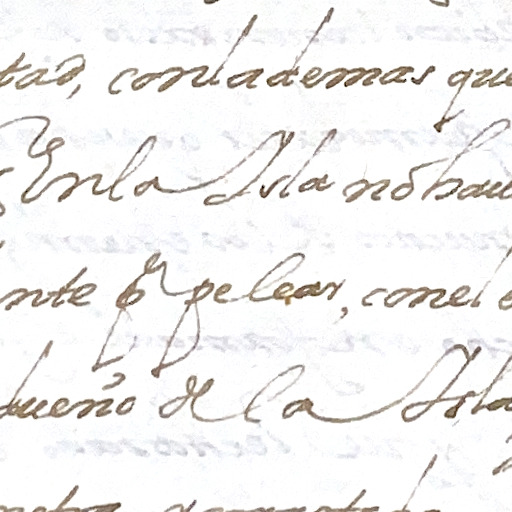 tad, conlademas que
Enla Isla nõ hau
nte pª pelear, conel
bueño de la Isla